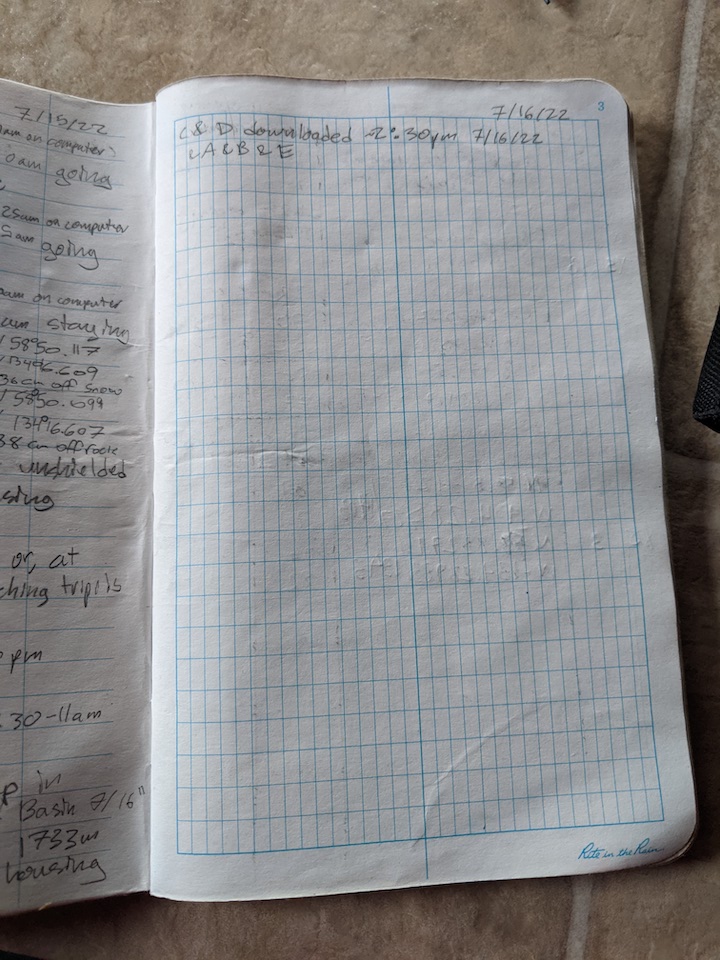 7/15/22
am on computer)
am going
25am on computer
5am going
am on computer
am staying
5850.117
13496.609
36cm off snow
5850.099
13496.607
38 cm off rock
unshielded
or, at
tripils
pm
30-11am
in
Basin 7/16"
1733m
housing
7/16/22
3
C & D downloaded ~2:30pm 7/16/22
A & B & E
Rite in the Rain